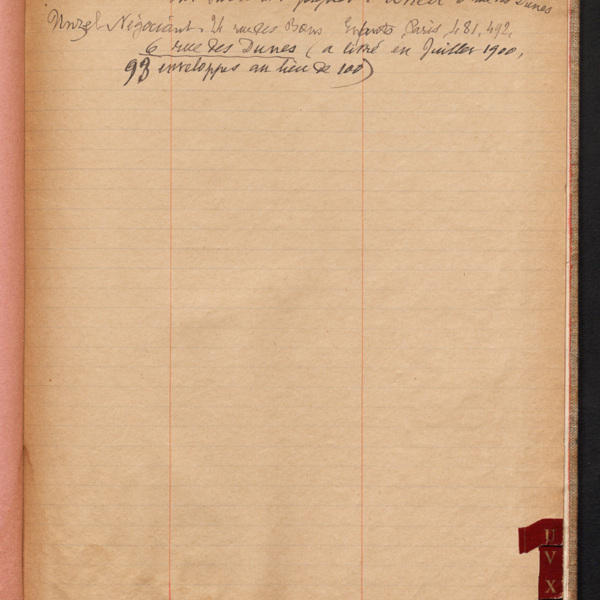 rue des Dunes
Unzel Négociant. 24 rue des Bons Enfants Paris, 481, 492,
6 rue des Dunes (a livré en Juillet 1900,
93 enveloppes au lieu de 100)
U
V
X